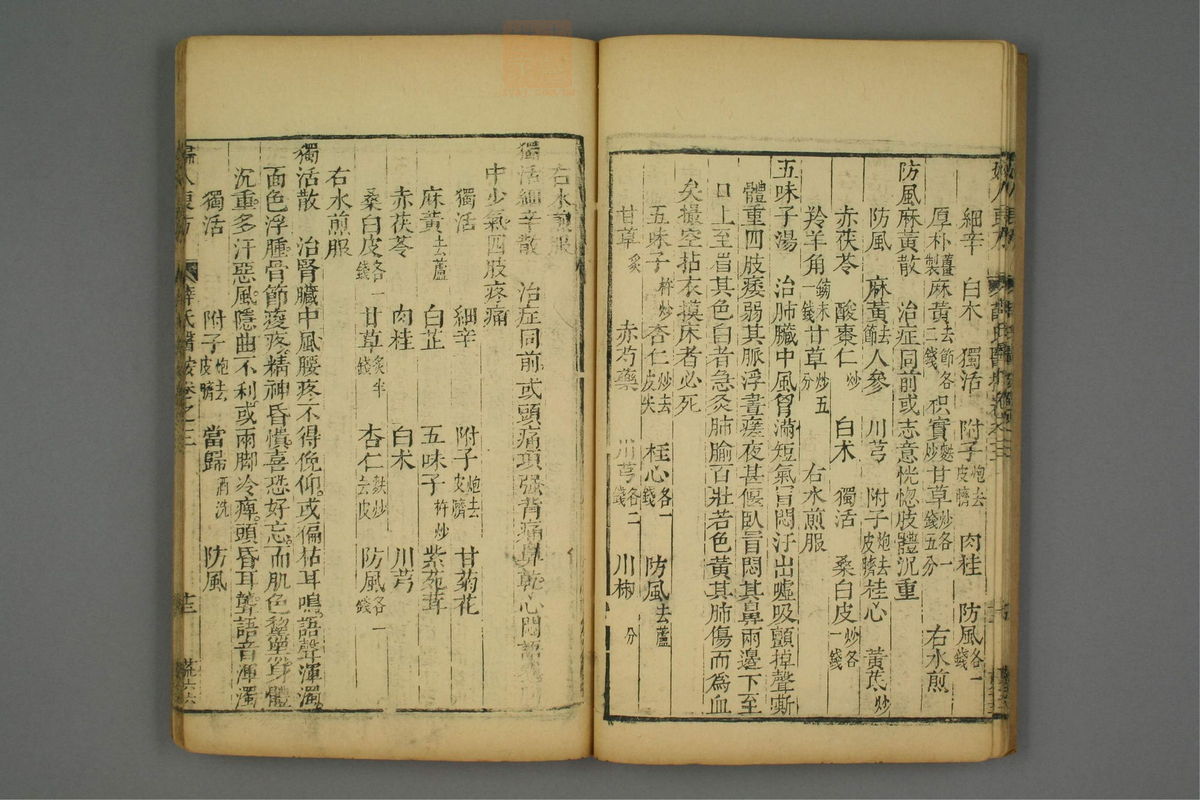 細辛 白木 獨活 附子炮去皮臍 肉桂 防風各一錢
厚朴薑製 麻黃去節各二錢 枳實麩炒 甘草炒各一錢五分 右水煎
防風麻黃散 治症同前或志意恍惚肢體沉重
防風 麻黃去節 人參 川芎 附子炮去皮臍 桂心 黃芪炒
赤茯苓 酸棗仁炒 白术 獨活 桑白皮炒各一錢
羚羊角鎊末一錢 甘草炒五分 右水煎服
五味子湯 治肺臟中風胷滿短氣冒悶汗出噓吸顫掉聲嘶
體重四肢痿弱其脈浮晝瘥夜甚偃臥冒悶其鼻兩邊下至
口上至眉其色白者急灸肺腧百壯若色黃其肺傷而爲血
矣撮空拈衣摸床者必死
五味子杵炒 杏仁炒去皮尖 桂心各一錢 防風去蘆
甘草炙 赤芍藥 川芎各二錢 川椒 分
右水煎服
獨活細辛散 治症同前或頭痛項强背痛鼻乾心悶語
中少氣四肢疼痛
獨活 細辛 附子炮去皮臍 甘菊花
麻黃去蘆 白芷 五味子杵炒 紫菀茸
赤茯苓 肉桂 白术 川芎
桑白皮各一錢 甘草炙半錢 杏仁麩炒去皮 防風各一錢
右水煎服
獨活散 治腎臟中風腰疼不得俛仰或偏枯耳鳴語聲渾濁
面色浮腫骨節痠疼精神昏憒喜恐好忘而肌色黧黑身體
沉重多汗惡風隱曲不利或兩脚冷痺頭昏耳聾語音渾濁
獨活 附子炮去皮臍 當歸酒洗 防風
婦人良方 薛氏醫按卷之三